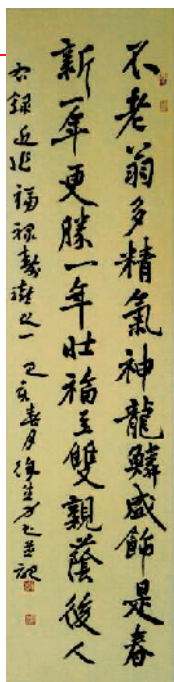 不老翁多精氣神龍鱗盛飾是春
新一年更勝一年壯福至雙親蔭後人
右錄近作福祿壽喜之一